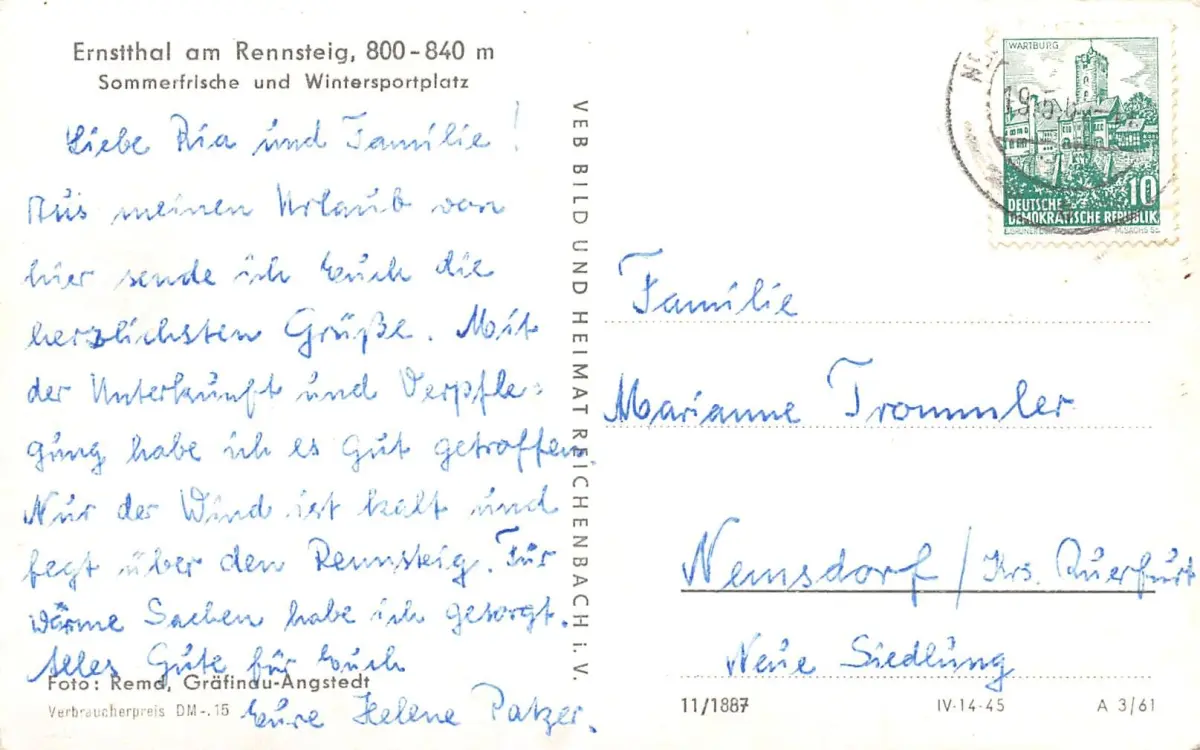 Ernstthal am Rennsteig, 800-840 m
Sommerfrische und Wintersportplatz
Liebe Ria und Familie!
Aus meinen Urlaub von
hier sende ich Euch die
herzlichsten Grüße. Mit
der Unterkunft und Verpfle=
gung habe ich es gut getroffen.
Nur der Wind ist kalt und
fegt über den Rennsteig. Für
wärme Sachen habe ich gesorgt.
Alles Gute für Euch
Eure Helene Patzer.
Foto: Remd, Gräfinau-Angstedt
Verbraucherpreis DM -.15
VEB BILD UND HEIMAT REICHENBACH i. V.
WARTBURG
19.5.6
10
DEUTSCHE
DEMOKRATISCHE REPUBLIK
Familie
Marianne Trommler
Nemsdorf / Krs. Querfurt
Neue Siedlung
11/1887
IV-14-45
A 3/61